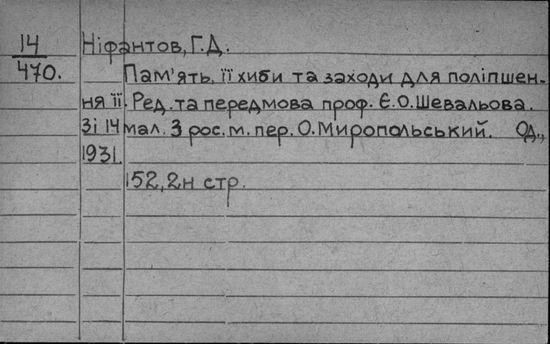 14
470.
Ніфантов, Г.Д.
Пам'ять, її хиби та заходи для поліпшен-
ня її. Ред. та передмова проф. Є.О.Шевальова.
Зі 14 мал. З рос. м. пер. О.Миропольський. Од.,
1931.
152, 2н стр.